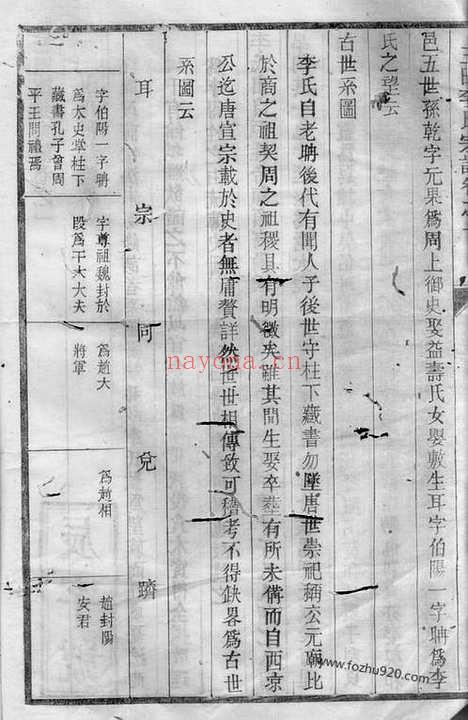 邑五世孫乾字元果爲周上御史娶益壽氏女嬰敷生耳字伯陽一字聃爲李
氏之望云
古世系圖
李氏自老聃後代有聞人子後世守柱下藏書勿墜唐世崇祀稱公元廟比
於商之祖契周之祖稷具有明徵矣雖其間生娶卒塟有所未備而自西凉
公迄唐宣宗載於史者無庸贅詳然世世相傳致可稽考不得缺畧爲古世
系圖云
耳 宗 同 兌 躋
字伯陽一字聃
爲太史掌柱下
藏書孔子曾周
平王問禮焉
字尊祖魏封於
段爲干木大夫
爲趙大
將軍
爲趙相
趙封陽
安君
nayona.cn
www.fozhu920.com